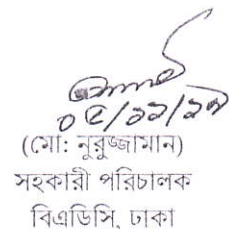 ০৫/১১/১৭
(মো: নুরুজ্জামান)
সহকারী পরিচালক
বিএডিসি, ঢাকা